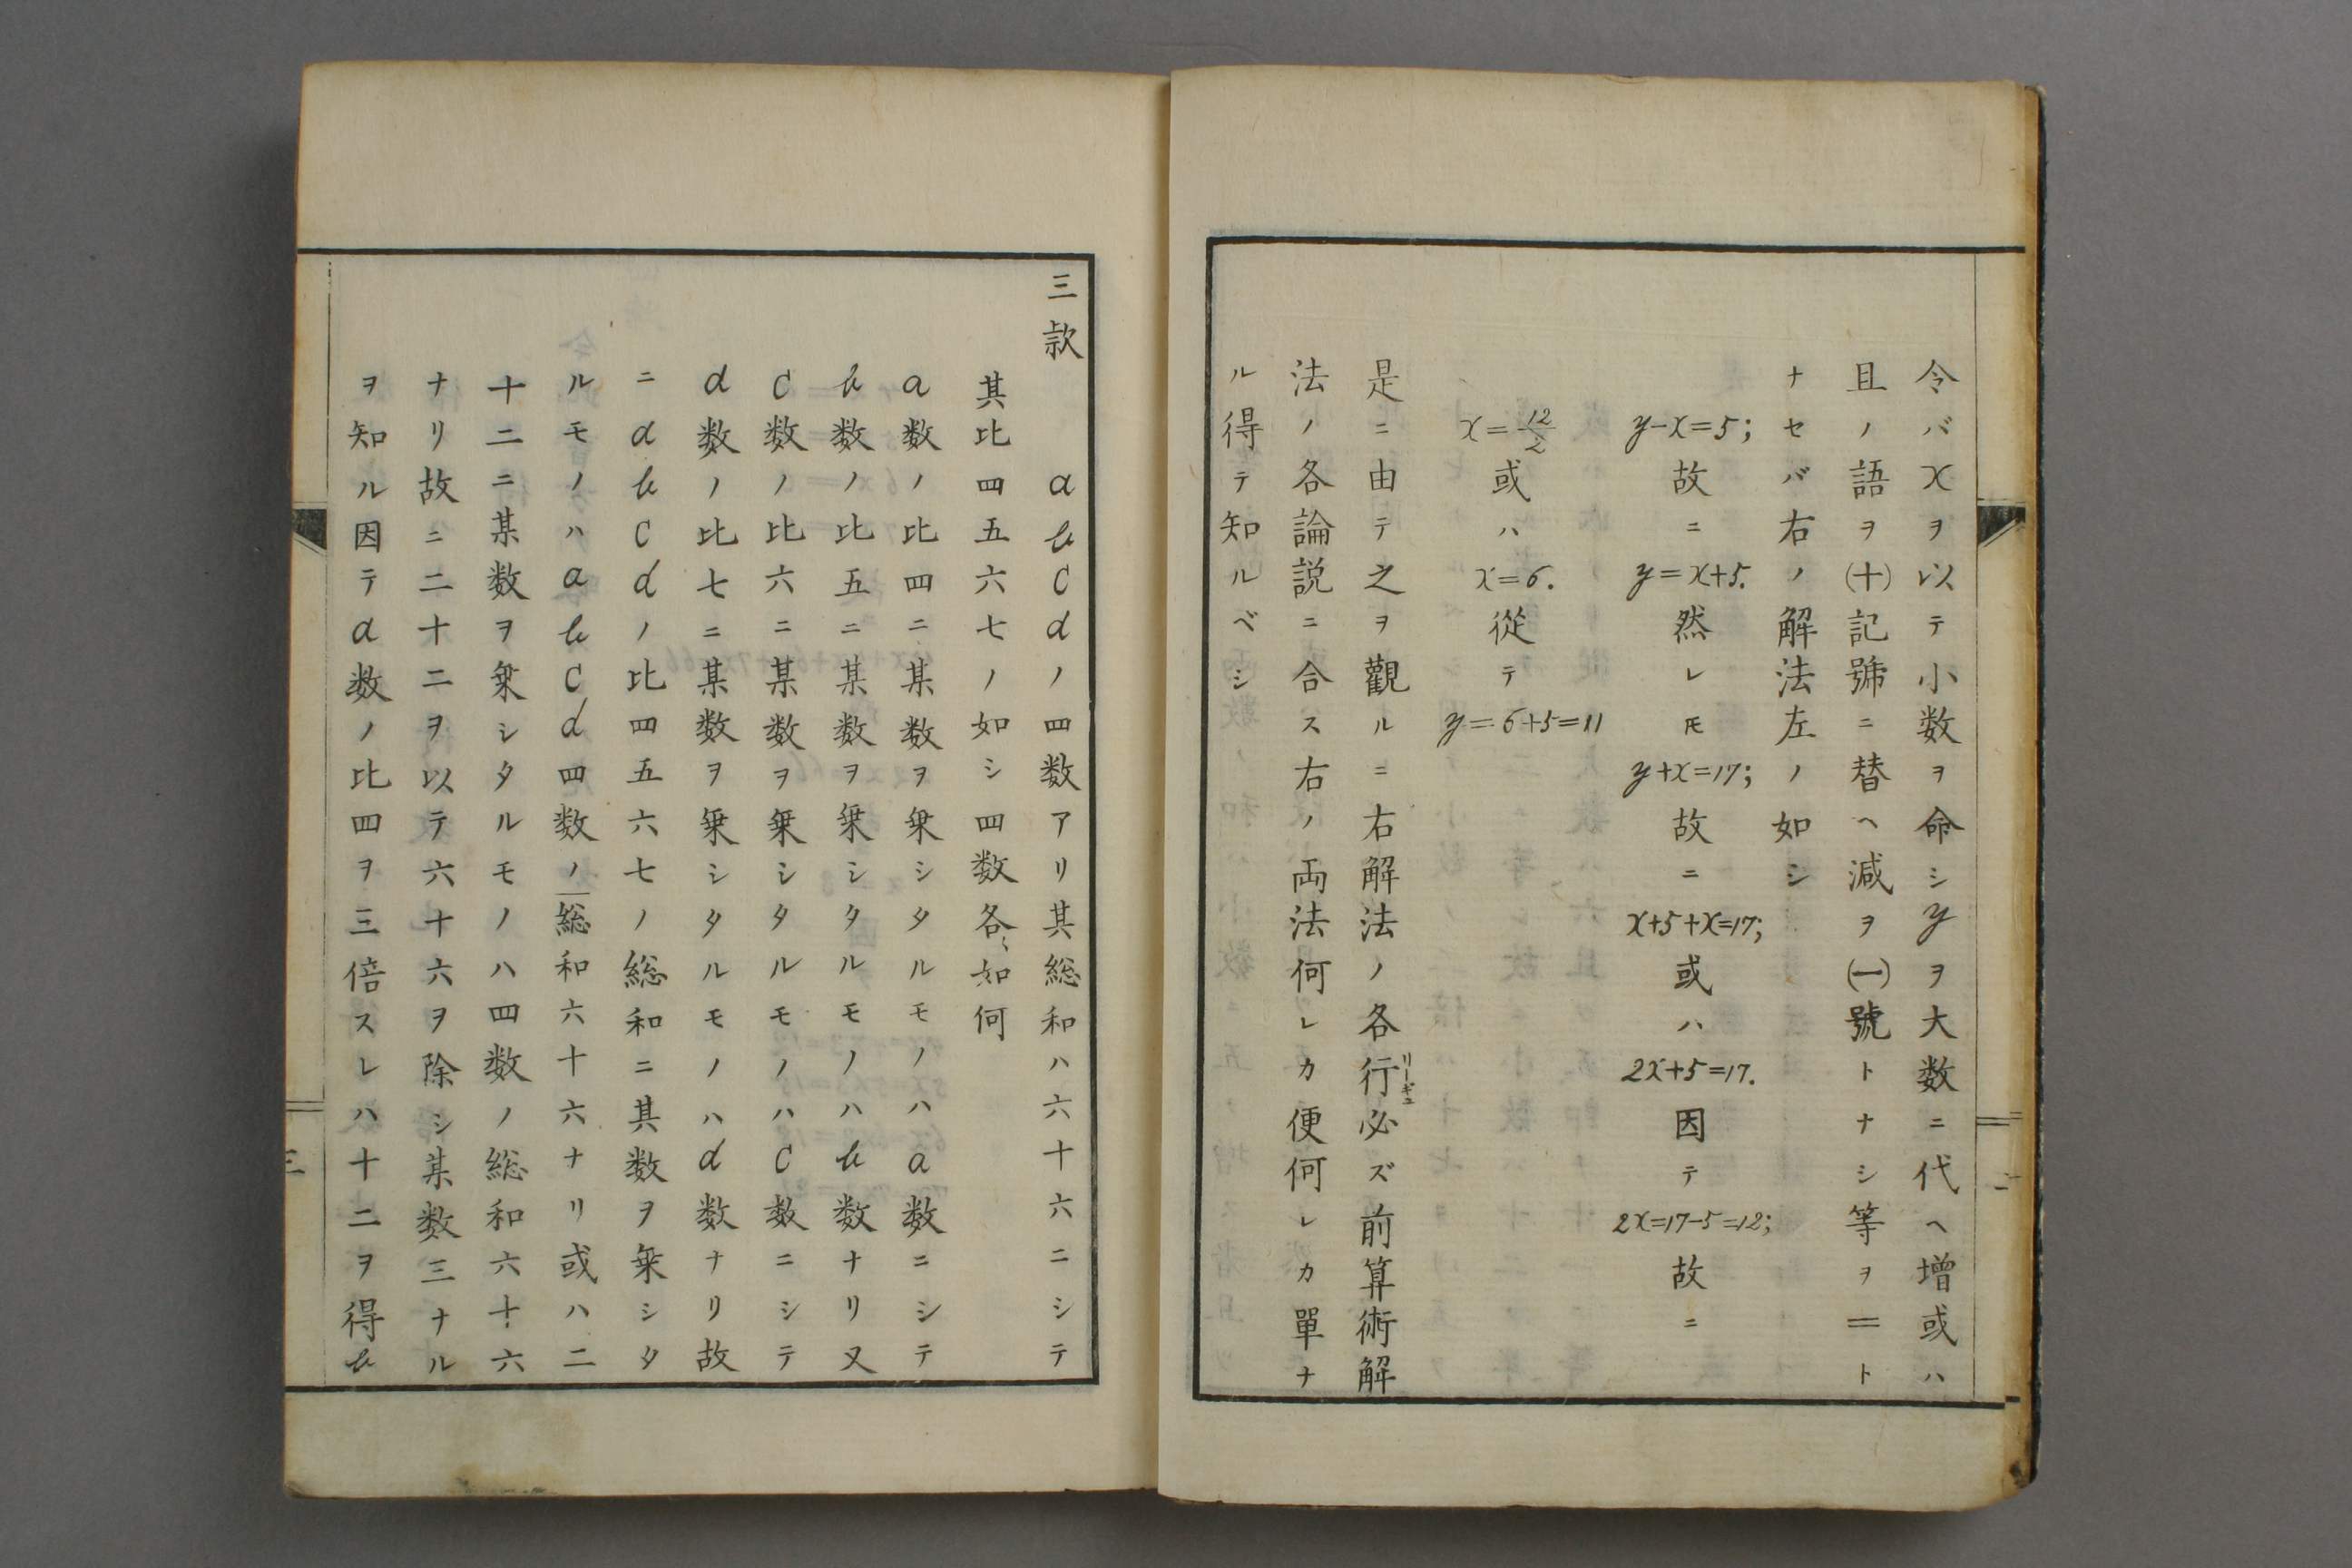 令バxヲ以テ小数ヲ命シyヲ大数ニ代ヘ増或ハ
且ノ語ヲ(十)記號ニ替ヘ減ヲ(一)號トナシ等ヲ=ト
ナセバ右ノ解法左ノ如シ
y-x=5; 故ニ y=x+5. 然レ𪜈 y+x=17; 故ニ x+5+x=17; 或ハ 2x+5=17. 因テ 2x=17-5=12; 故ニ
x=12/2 或ハ x=6. 從テ y=6+5=11
是ニ由テ之ヲ觀ルニ右解法ノ各行リーギュ必ズ前算術解
法ノ各論説ニ合ス右ノ両法何レカ便何レカ單ナ
ル得テ知ルベシ
二
三款 a b c d ノ四数アリ其総和ハ六十六ニシテ
其比四五六七ノ如シ四数各〻如何
a数ノ比四ニ某数ヲ乗シタルモノハa数ニシテ
b数ノ比五ニ某数ヲ乗シタルモノハb数ナリ又
c数ノ比六ニ某数ヲ乗シタルモノハc数ニシテ
d数ノ比七ニ某数ヲ乗シタルモノハd数ナリ故
ニ a b c d ノ比四五六七ノ総和ニ其数ヲ乗シタ
ルモノハ a b c d 四数ノ総和六十六ナリ或ハ二
十二ニ某数ヲ乗シタルモノハ四数ノ総和六十六
ナリ故ニ二十二ヲ以テ六十六ヲ除シ某数三ナル
ヲ知ル因テa数ノ比四ヲ三倍スレハ十二ヲ得b
三